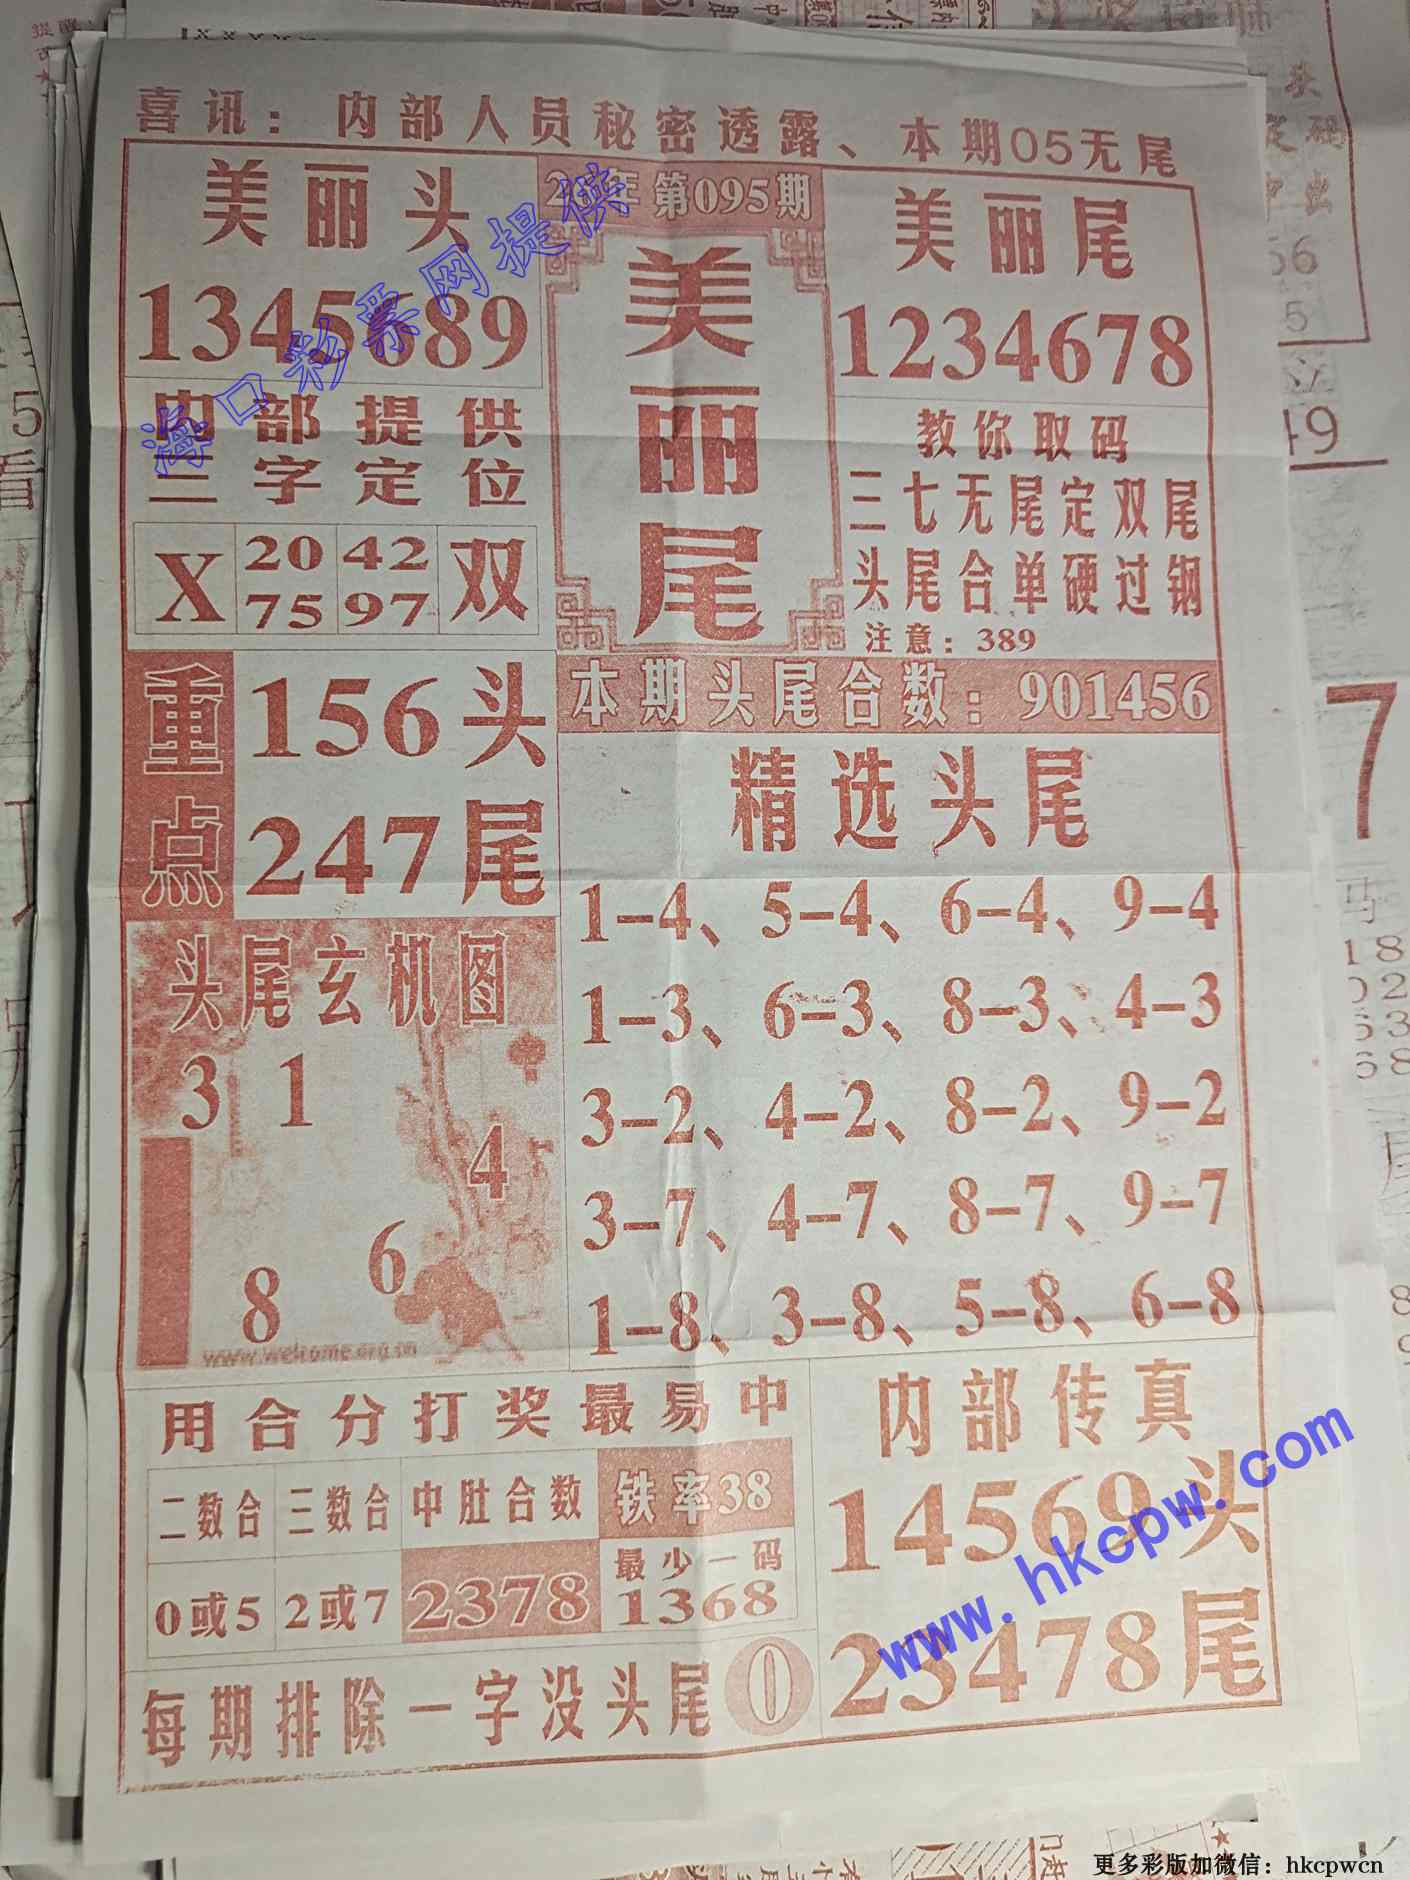 喜讯：内部人员秘密透露、本期05无尾
美丽头
1345689
第095期
美丽尾
美丽尾
1234678
内部提供
三字定位
X
20
75
42
97
双
教你取码
三七无尾定双尾
头尾合单硬过钢
注意：389
重点
156头
247尾
本期头尾合数：901456
精选头尾
1-4、5-4、6-4、9-4
1-3、6-3、8-3、4-3
3-2、4-2、8-2、9-2
3-7、4-7、8-7、9-7
1-8、3-8、5-8、6-8
头尾玄机图
3 1
4
6
8
www.welcome.org.cn
用合分打奖最易中
二数合 三数合 中肚合数 铁率38
0或5 2或7 2378 最少一码
1368
每期排除一字没头尾 0
内部传真
14569头
23478尾
海口彩票网提供
www.hkcpw.com
更多彩版加微信：hkcpwcn